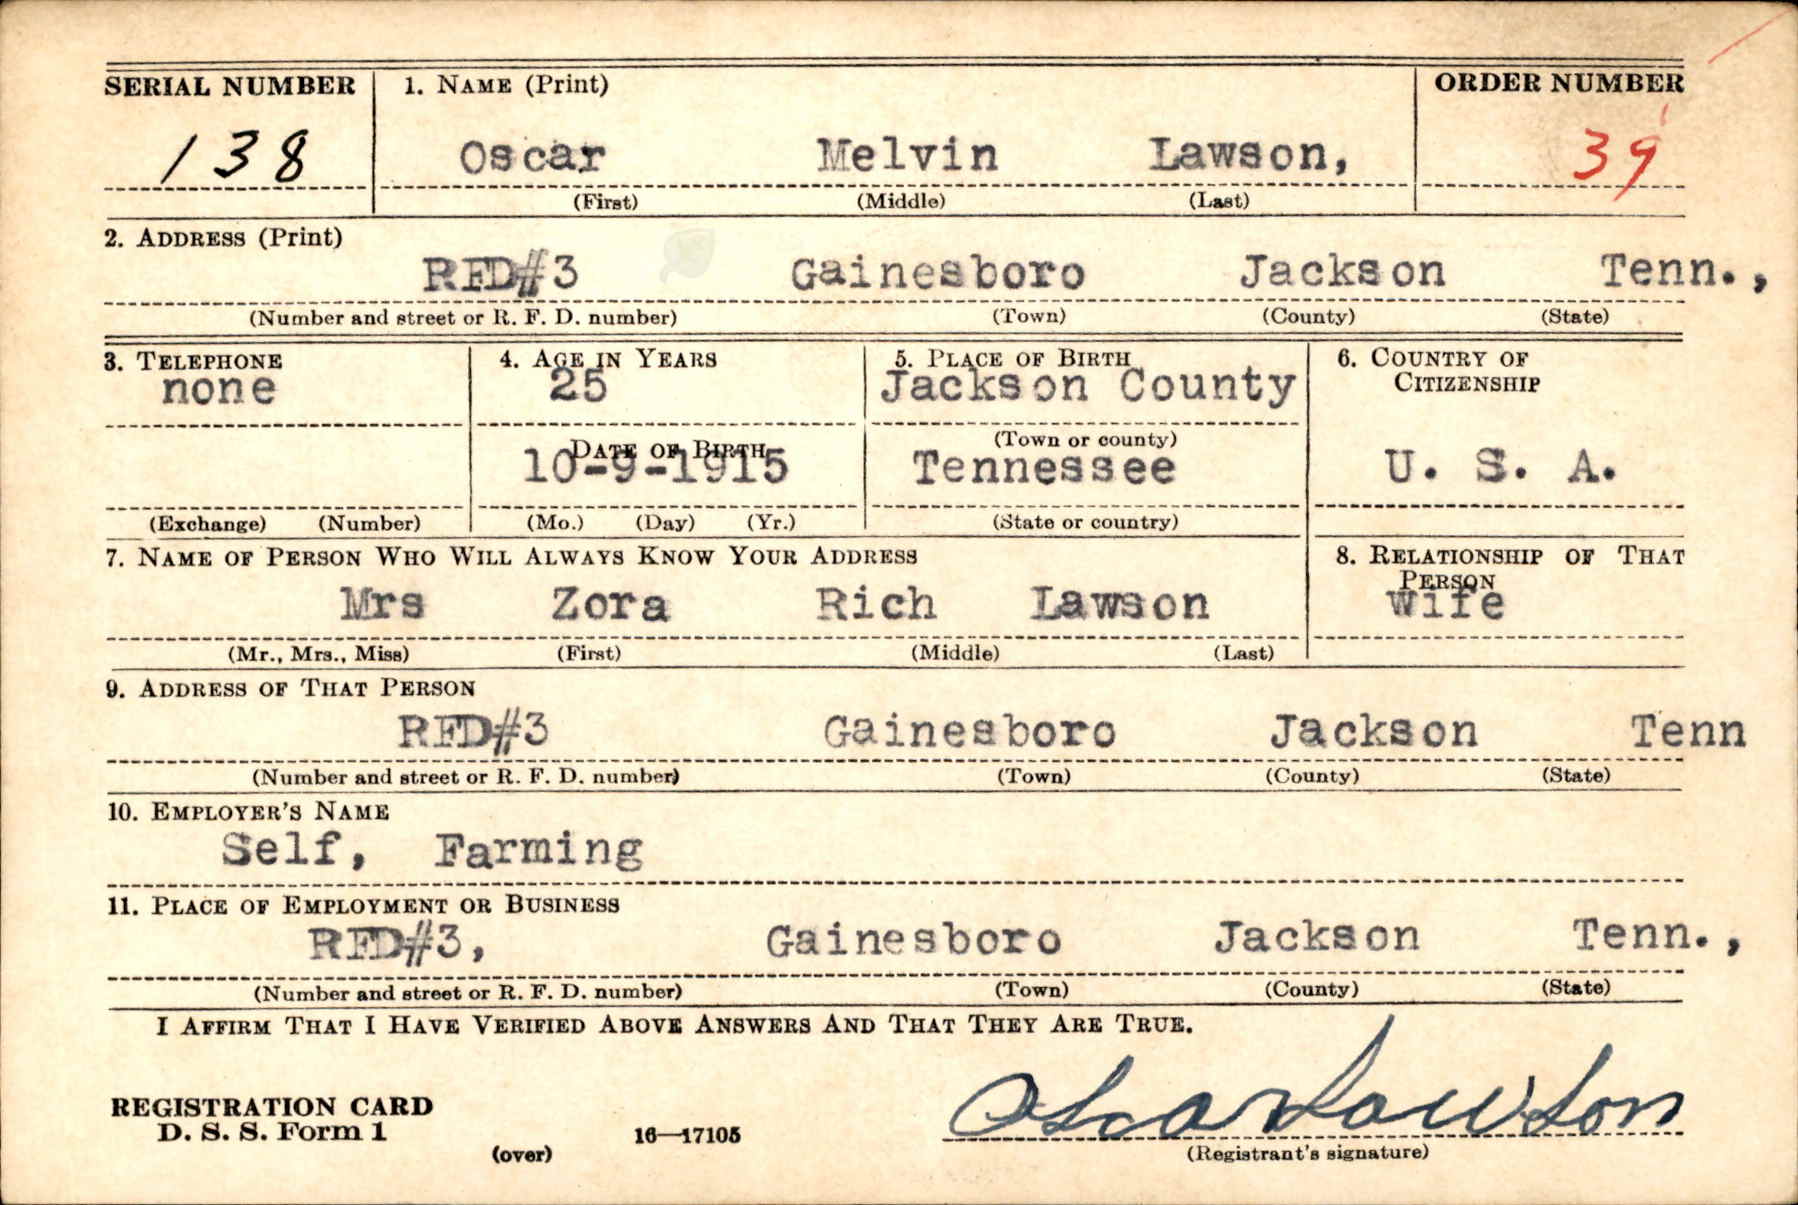 SERIAL NUMBER 1. NAME (Print) ORDER NUMBER
138 Oscar Melvin Lawson, 39
(First) (Middle) (Last)
2. ADDRESS (Print)
RFD#3 Gainesboro Jackson Tenn.,
(Number and street or R. F. D. number) (Town) (County) (State)
3. TELEPHONE 4. AGE IN YEARS 5. PLACE OF BIRTH 6. COUNTRY OF
CITIZENSHIP
none 25 Jackson County
DATE OF BIRTH (Town or county)
10-9-1915 Tennessee U. S. A.
(Exchange) (Number) (Mo.) (Day) (Yr.) (State or country)
7. NAME OF PERSON WHO WILL ALWAYS KNOW YOUR ADDRESS 8. RELATIONSHIP OF THAT
PERSON
Mrs Zora Rich Lawson wife
(Mr., Mrs., Miss) (First) (Middle) (Last)
9. ADDRESS OF THAT PERSON
RFD#3 Gainesboro Jackson Tenn
(Number and street or R. F. D. number) (Town) (County) (State)
10. EMPLOYER'S NAME
Self, Farming
11. PLACE OF EMPLOYMENT OR BUSINESS
RFD#3, Gainesboro Jackson Tenn.,
(Number and street or R. F. D. number) (Town) (County) (State)
I AFFIRM THAT I HAVE VERIFIED ABOVE ANSWERS AND THAT THEY ARE TRUE.
REGISTRATION CARD
D. S. S. Form 1
(over) 16—17105
Oscar Lawson
(Registrant's signature)